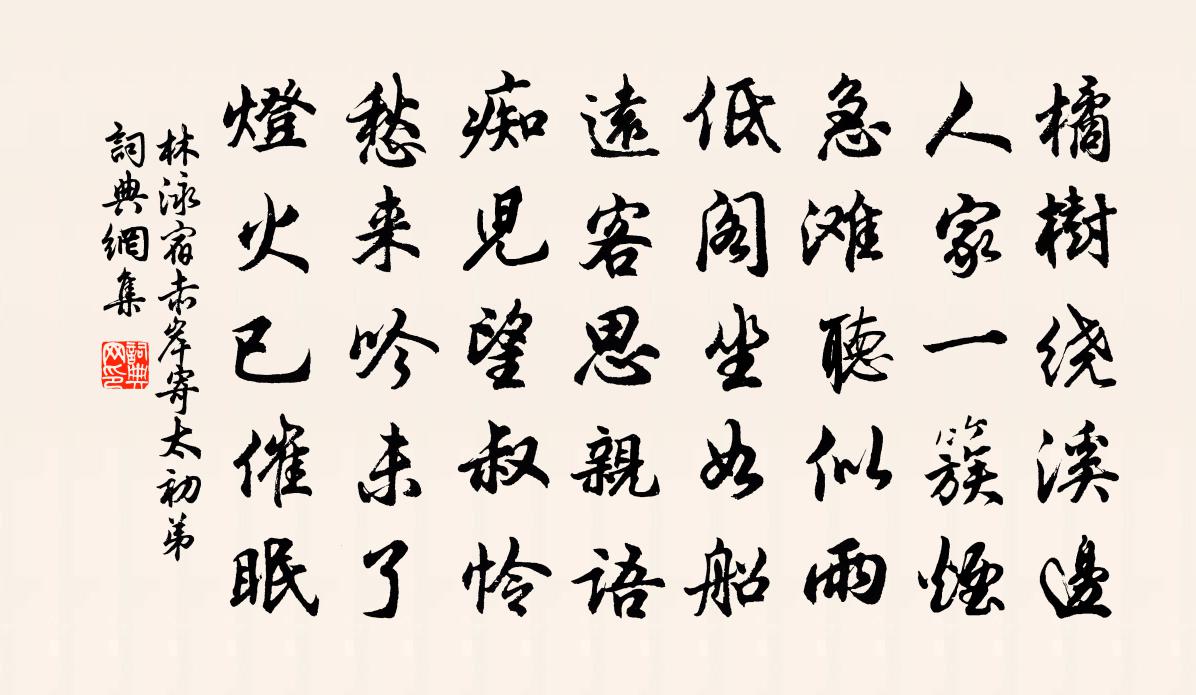 橘樹绕溪邊
人家一簇煙
急滩聽似雨
低阁坐如船
遠客思親語
痴児望叔怜
愁来吟未了
燈火已催眠
林泳宿赤岸寄太初弟
詞典網集
詞典網印